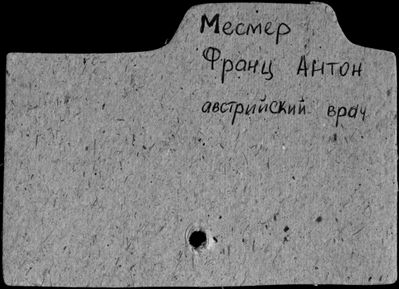 Месмер
Франц Антон
австрийский врач